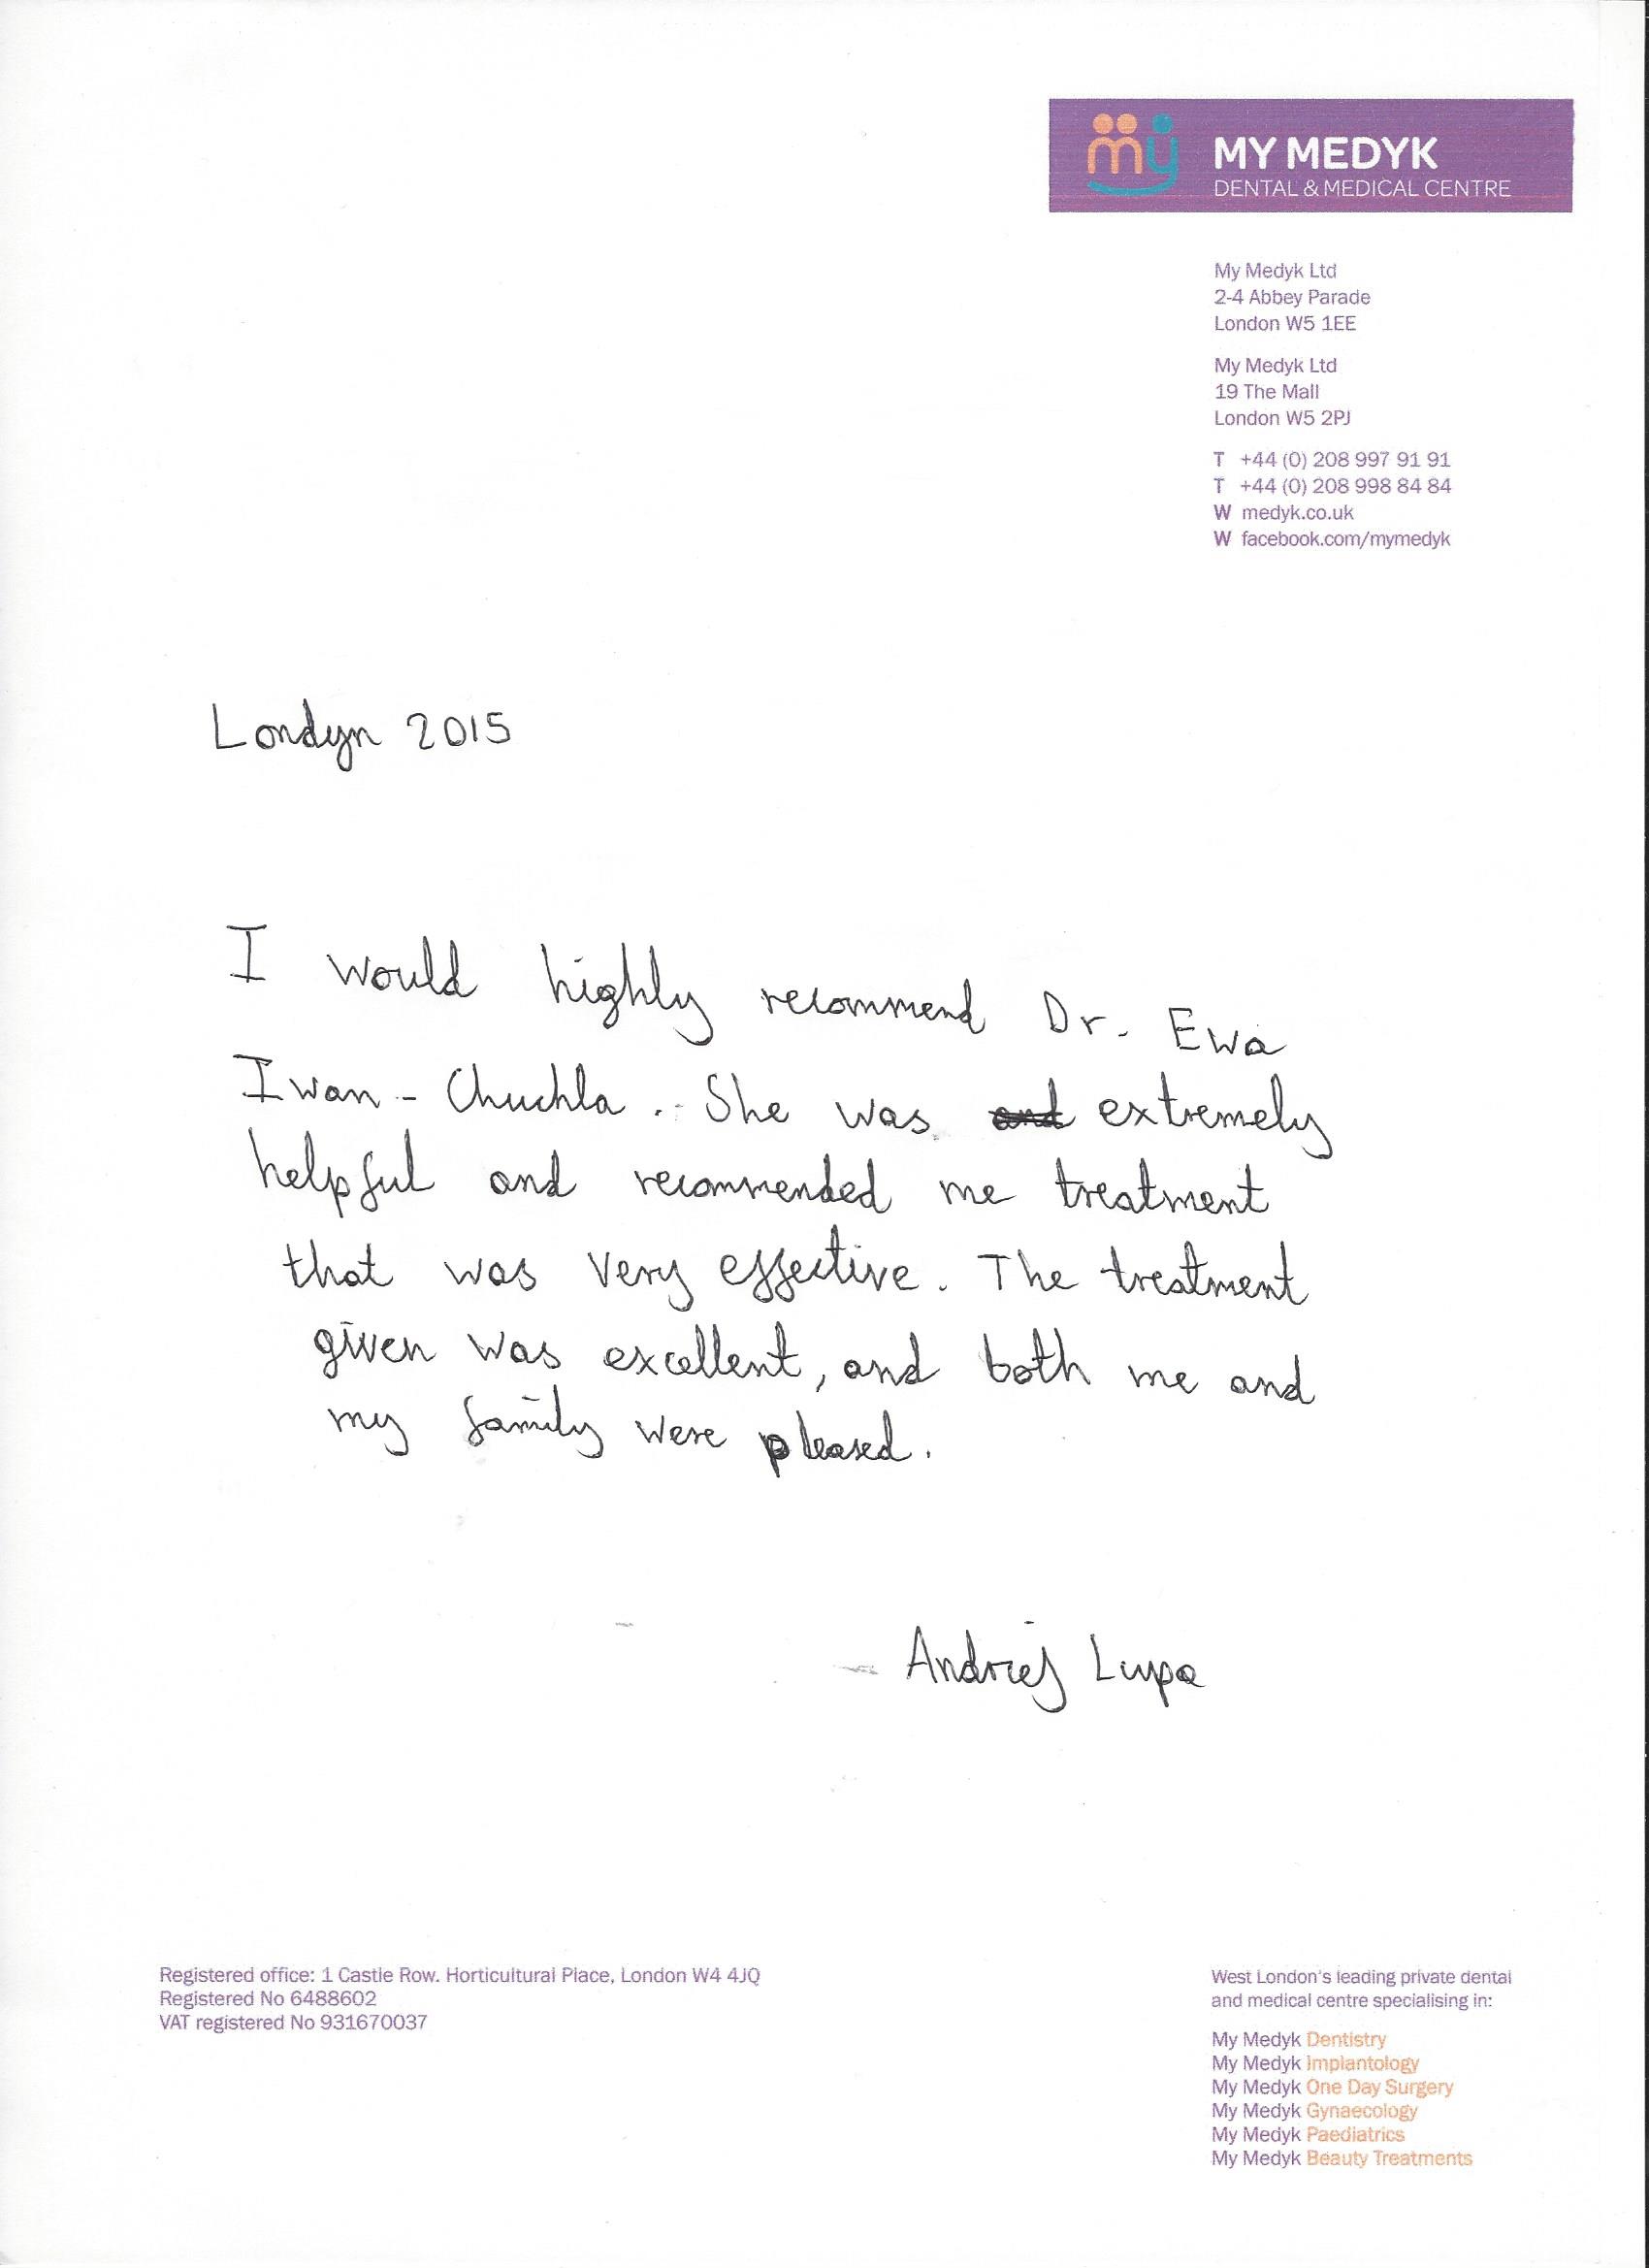 my MY MEDYK
DENTAL & MEDICAL CENTRE
My Medyk Ltd
2-4 Abbey Parade
London W5 1EE
My Medyk Ltd
19 The Mall
London W5 2PJ
T +44 (0) 208 997 91 91
T +44 (0) 208 998 84 84
W medyk.co.uk
W facebook.com/mymedyk
Londyn 2015
I would highly recommend Dr. Ewa
Iwan - Chuchla. She was and extremely
helpful and recommended me treatment
that was very effective. The treatment
given was excellent, and both me and
my family were pleased.
- Andriej Lupa
Registered office: 1 Castle Row. Horticultural Place, London W4 4JQ
Registered No 6488602
VAT registered No 931670037
West London's leading private dental
and medical centre specialising in:
My Medyk Dentistry
My Medyk Implantology
My Medyk One Day Surgery
My Medyk Gynaecology
My Medyk Paediatrics
My Medyk Beauty Treatments